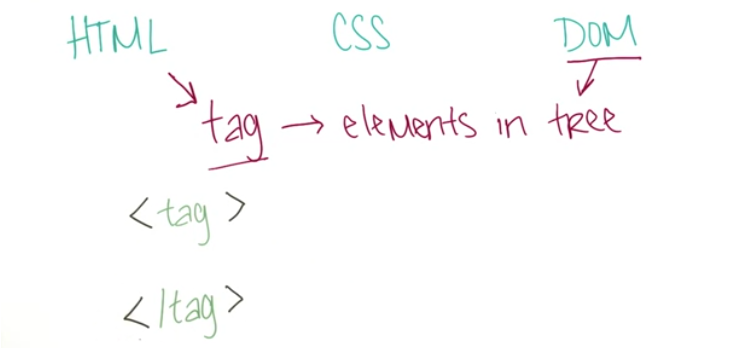 HTML CSS DOM
tag → elements in tree
<tag>
</tag>